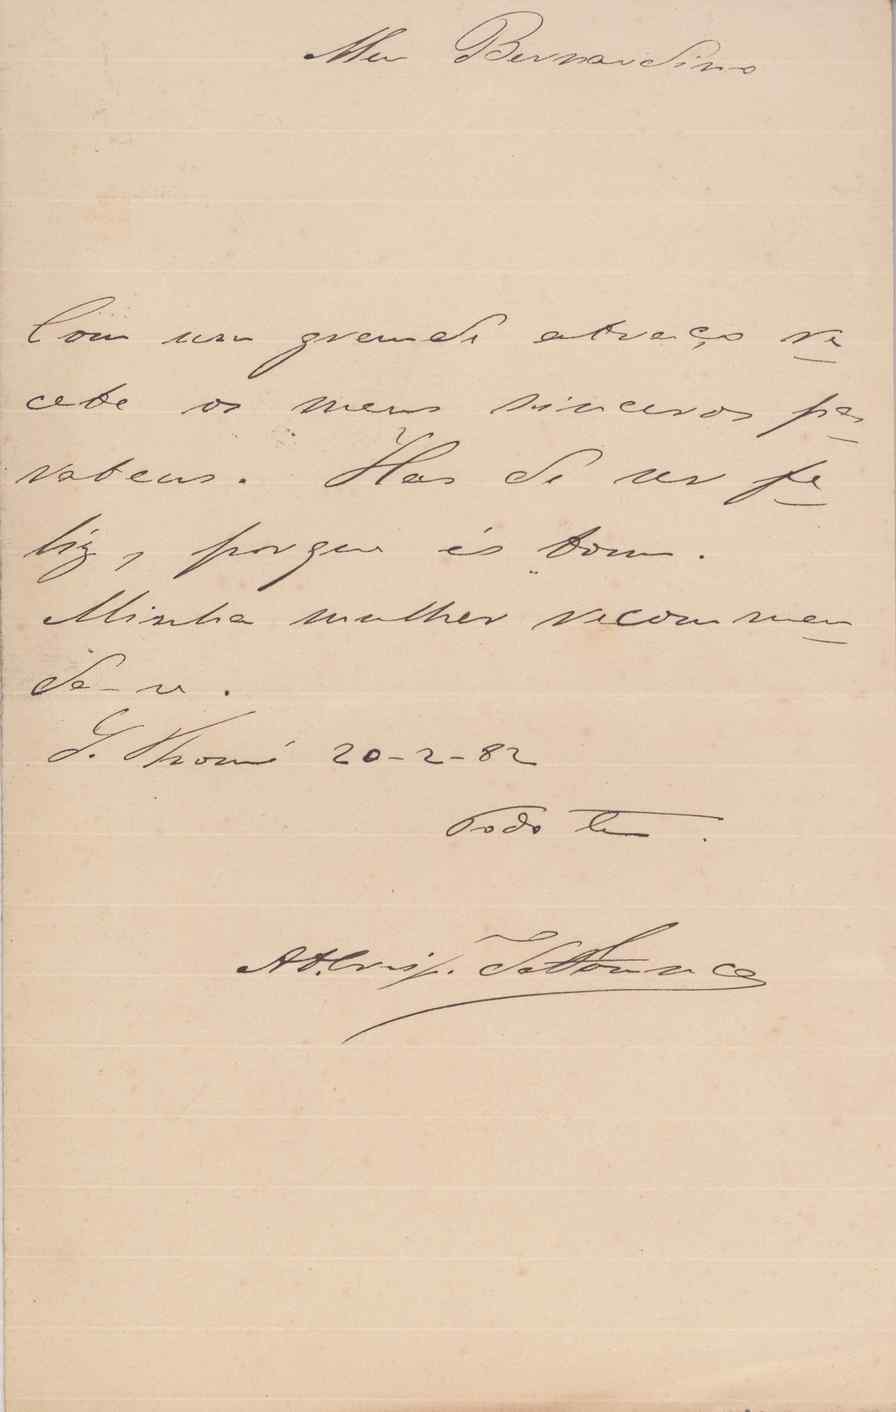 Meu Bernardino
Com um grande abraço re
cebe os meus sinceros pa
rabens. Has de ser fe
liz, porque és bom.
Minha mulher recommen
da-se.
S. Thomé 20-2-82
Todo teu